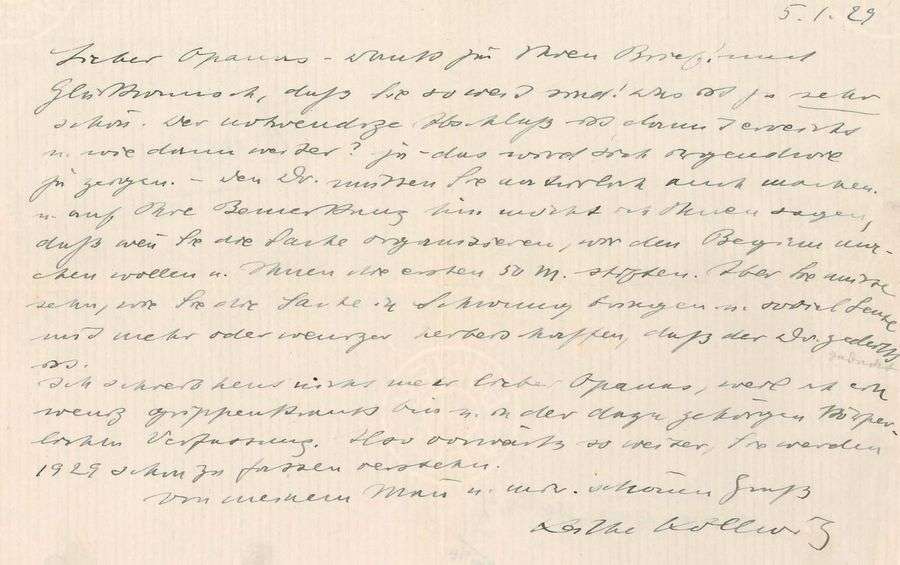 5.1.29
Lieber Opanas – Dank für Ihren Brief! und
Glückwunsch, daß Sie so weit sind! Das ist ja sehr
schön. Der notwendige Abschluß ist damit erreicht
u. wie dann weiter? ja – das wird sich irgendwie
ja zeigen. – Den Dr. müssen Sie natürlich auch machen.
u. auf Ihre Bemerkung hin möcht ich Ihnen sagen,
daß wen Sie die Sache organisieren, wir den Beginn ma-
chen wollen u. Ihnen die ersten 50 M. stiften. Aber Sie müssen
sehn, wie Sie die Sache in Schwung bringen u. soviel Leute
mit mehr oder weniger herbeischaffen, daß der Dr. gedeckt
ist.
Ich schreib heut nicht mehr lieber Opanas, weil ich ein
wenig grippenkrank bin u. in der dazu gehörigen körper-
lichen Verfassung. Also vorwärts so weiter, Sie werden
1929 schon zu fassen verstehn.
Von meinem Man u. mir schönen Gruß
Käthe Kollwitz